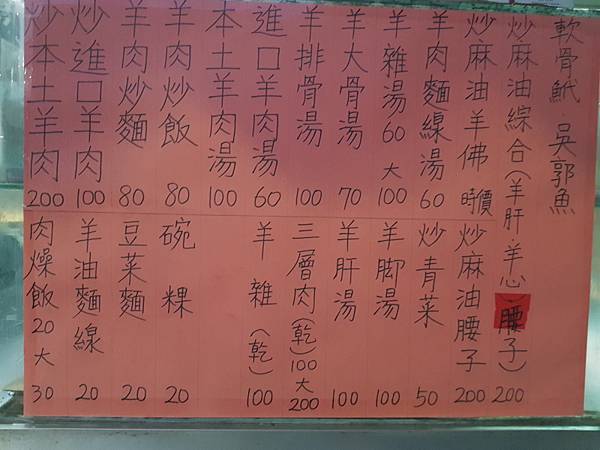 軟骨魟.吳郭魚
炒麻油綜合(羊肝.羊心.腰子)200
炒麻油羊佛 時價
羊肉麵線湯 60
羊雜湯60大100
羊大骨湯 70
羊排骨湯 100
進口羊肉湯 60
本土羊肉湯 100
羊肉炒飯 80
羊肉炒麵 80
炒進口羊肉 100
炒本土羊肉 200
炒麻油腰子 200
炒青菜 50
羊腳湯 100
羊肝湯 100
三層肉(乾)100大200
羊雜(乾)100
碗粿 20
豆菜麵 20
羊油麵線 20
肉燥飯20大30